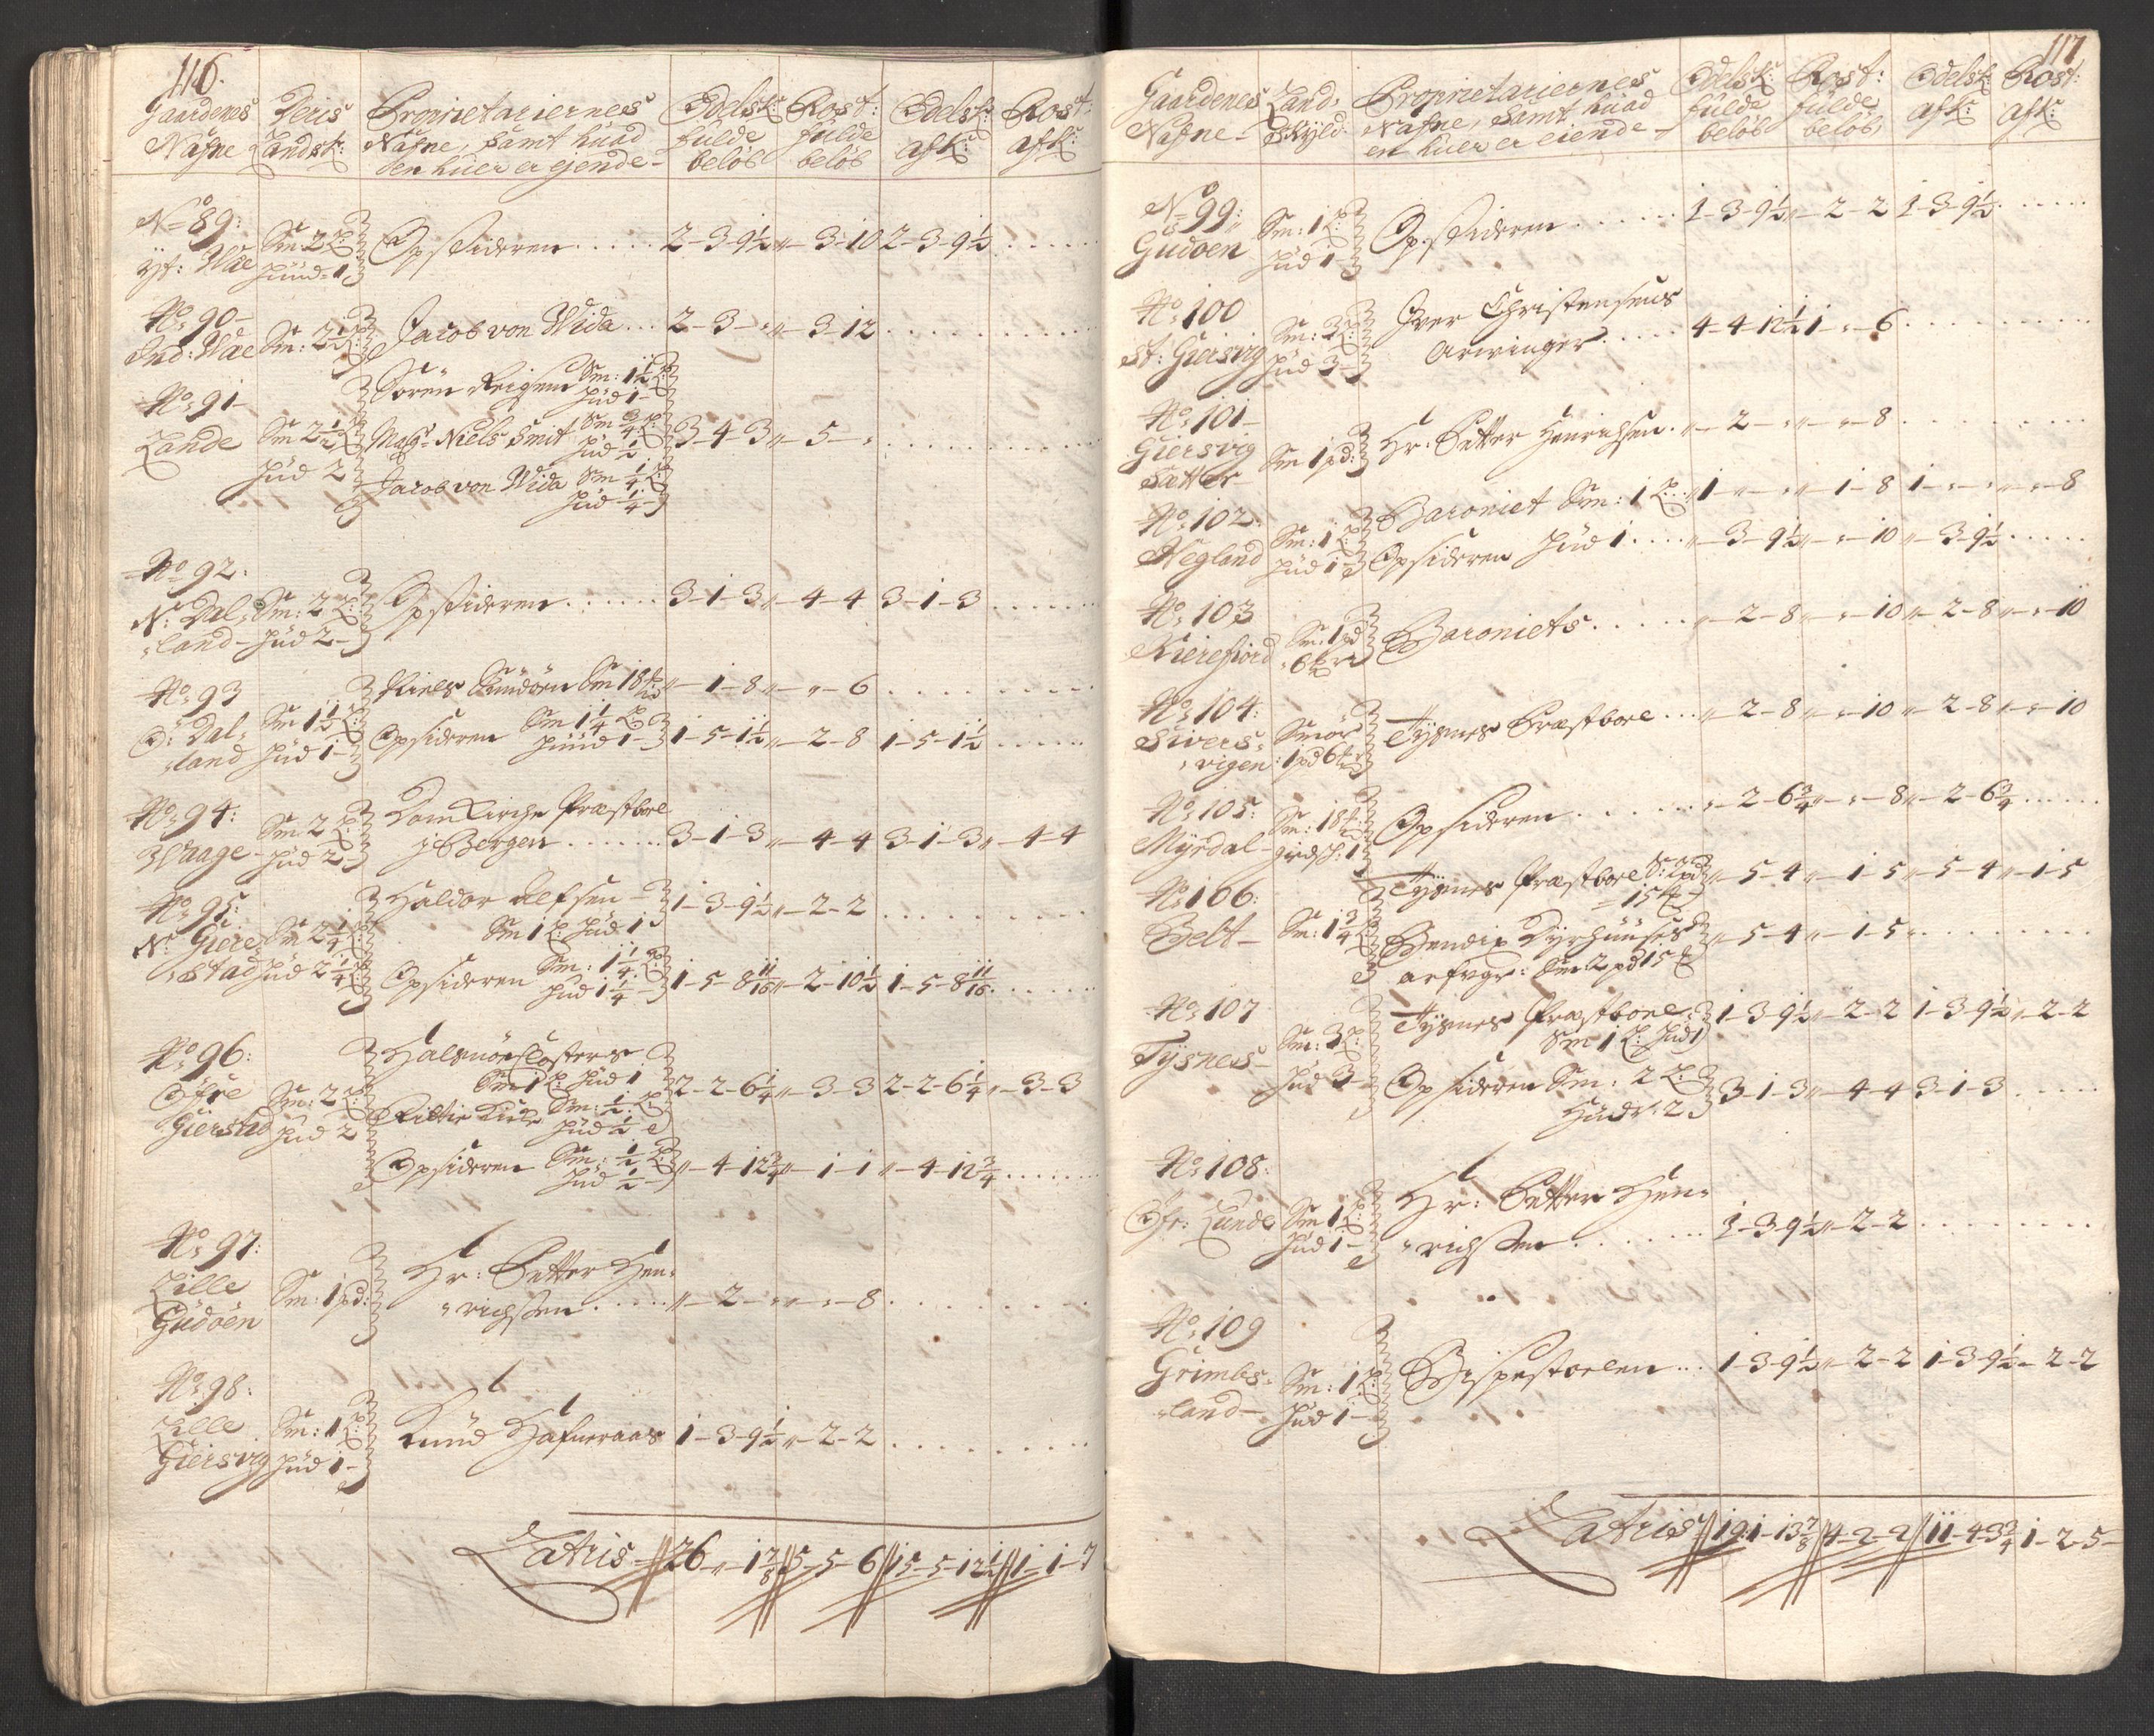 116.
Gaardenes Deris Proprietariernes Odelsk: Rost: Odelsk: Rost:
Nafne Landsk: Nafne, samt huad fulde fulde afk: afk:
den huer er ejende beløb beløb
No 89:
yt: Wae Sm: 2 L: Hud: 1 Opsideren 2-3-9½ „-3-10 2-3-9½
No 90
Ind: Wae Sm: 2½ L: Jacob von Wida 2-3-„ „-3-12
No 91 Sören Sm: 1½ L: Hud 1
Lande Sm 2½ L: Mag: Niels Smit Sm ¾ L: Hud ½ 3-4-3 „-5-„
Hud 2 Jacob von Wida Sm ¼ L: Hud ¼
No 92.
N: Dal- Sm: 2 L: Opsideren 3-1-3 „-4-4 3-1-3
land Hud 2
No 93 Niels Sm 18 „-1-8 „-„-6
Dal- Sm 1½ L: Opsideren Sm 1¼ L: 1-5-1½ „-2-8 1-5-1½
land Hud 1 Hud 1
No 94: Sm 2 L: Dom Kirche Præstbole
Waage Hud 2 j Bergen 3-1-3 „-4-4 3-1-3 „-4-4
No 95: Haldor Alfsen 1-3-9½ „-2-2
N: Giere- Sm 2¼ L: Sm 1 L: Hud 1
stad Hud 2¼ Opsideren Sm: 1¼ L: Hud 1¼ 1-5-8 11/16 „-2-10½ 1-5-8 11/16
No 96: Halsnöe Closters
Öfre Sm: 2 L: Sm 1 L: Hud 1 2-2-6¼ „-3-3 2-2-6¼ „-3-3
Gierstad Hud 2 Sm: ½ L: Hud ½
Opsideren Sm: ½ L: Hud ½ „-4-12¾ „-1-1 „-4-12¾
No 97:
Lille Sm: 1 pd: Hr: Petter Hen-
Gudöen richsen „-2-„ „-„-8
No 98:
Lille Sm: 1 L: Knud Hafneraas 1-3-9½ „-2-2
Giersvig Hud 1
Latris 26-„-1⅞ 5-5-6 15-5-12½ 1-1-7
117
Gaardenes Land- Proprietariernes Odelsk: Rost: Odelsk: Rost:
Nafne Skyld. Nafne, Samt huad fulde fulde afk: afk:
en huer er eiende beløb beløb
No 99:
Gudøen Sm: 1 L: Hud 1 Opsideren 1-3-9½ „-2-2 1-3-9½
No 100 Iver Christensens
St: Giersvig Sm: 3 L: Hud 3 Arwinger 4-4-12½ 1-„-6
No 101
Giersvig Sm 1 pd: Hr: Petter Henrichsen „-2-„ „-„-8
Sætter
No 102 Baroniet Sm: 1 L: „-1-„ „-1-8 1-„-„ „-„-8
Negland Sm: 1 L: Hud 1 Opsideren Hud 1 „-3-9½ „-„-10 „-3-9½
No 103
Kierefiord Sm: 1 pd 6 Baroniets „-2-8 „-„-10 „-2-8 „-„-10
No 104: Smör
Sivers- Tysnes Præstbole „-2-8 „-„-10 „-2-8 „-„-10
vigen 1 pd 6
No 105:
Myrdal Sm: 18 Opsideren „-2-6¾ „-„-8 „-2-6¾
No 106: Tysnes Præstbole S: 2 pd 15 „-5-4 „-1-5 „-5-4 „-1-5
Belt Sm: 1¾ Bendix Dyrhuuses „-5-4 „-1-5
arfvgr: Sm 2 pd 15
No 107 Tysnes Præstbole 1-3-9½ „-2-2 1-3-9½ „-2-2
Tysnes Sm: 3 L: Sm 1 L: Hud 1
Hud 3 Opsideren Sm: 2 L: 3-1-3 „-4-4 3-1-3
Hudr: 2
No 108: Hr: Petter Hen-
Öfr: Lunde Sm 1 L: Hud 1 richsen 1-3-9½ „-2-2
No 109
Grimbs- Sm: 1 L: Bispestoelen 1-3-9½ „-2-2 1-3-9½ „-2-2
land Hud 1
Latris 19-1-13⅞ 4-2-2 11-4-3¾ 1-2-5